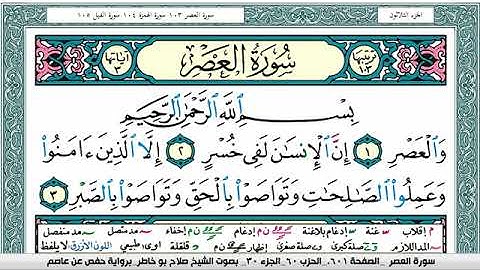 الجزء الثلاثون
سورة العصر ١٠٣ سورة الهمزة ١٠٤ سورة الفيل ١٠٥
ترتيبها ١٠٣
سُورَةُ العَصْرِ
آياتها ٣
بِسْمِ اللَّهِ الرَّحْمَٰنِ الرَّحِيمِ
وَالْعَصْرِ ١ إِنَّ الْإِنسَانَ لَفِي خُسْرٍ ٢ إِلَّا الَّذِينَ ءَامَنُوا
وَعَمِلُوا الصَّالِحَاتِ وَتَوَاصَوْا بِالْحَقِّ وَتَوَاصَوْا بِالصَّبْرِ ٣
م إقلاب غنة إدغام بلاغنة إدغام إخفاء مد متصل مد منفصل
المد اللازم صلة كبرى صلة صغرى إظهار قلقلة طبيعي اللون الأزرق لا يلفظ
سورة العصر _ الصفحة ٦٠١_ الحزب ٦٠_ الجزء ٣٠_ بصوت الشيخ صلاح بو خاطر_ برواية حفص عن عاصم